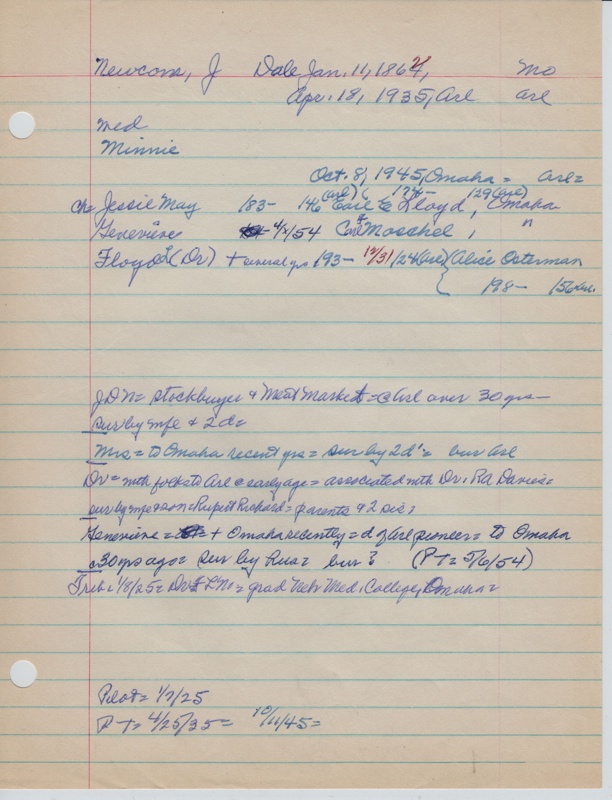 Newcom, J Dale Jan. 11, 1864, Mo
Apr. 18, 1935, Arl Arl
med
Minnie
Oct. 8, 1945, Omaha = Arl=
Ch= Jessie May 183- 146 (Arl) { 174- 129 (Arl)
Earl E Lloyd, Omaha
Genevieve 4/x/54 Carl F Moschel, "
Floyd L (Dr) + several yrs 193- 12/31/24 (Arl) { Alice Osterman
198- 156 Arl.
J D N = stockbuyer & Meat Market = c Arl over 30 yrs-
sur by wife & 2 d=
Mrs = to Omaha recent yrs = sur by 2 d's= bur Arl
Dr = with folks to Arl @ early age = associated with Dr. RA Davies=
sur by wife & son = Rupert Richard = parents & 2 sis:
Genevieve = + Omaha recently = d of Arl pioneer = to Omaha
c 30 yrs ago = sur by hus = bur? (P T = 5/6/54)
Trib: 1/8/25 = Dr F L N = grad Nebr Med. College, Omaha=
Pilot = 1/7/25
P T = 4/25/35 = 10/11/45 =